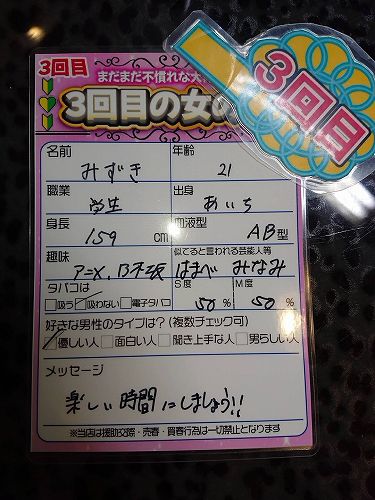 3回目
まだまだ不慣れな大
3回目の女の
3回目
名前 みずき 年齢 21
職業 学生 出身 あいち
身長 159 cm 血液型 AB型
趣味 アニメ、乃木坂 似てると言われる芸能人等 はまべ みなみ
タバコは S度 M度
吸う 吸わない 電子タバコ 50% 50%
好きな男性のタイプは?(複数チェック可)
優しい人 面白い人 聞き上手な人 男らしい人
メッセージ
楽しい時間にしましょう!!
※当店は援助交際・売春・買春行為は一切禁止となります